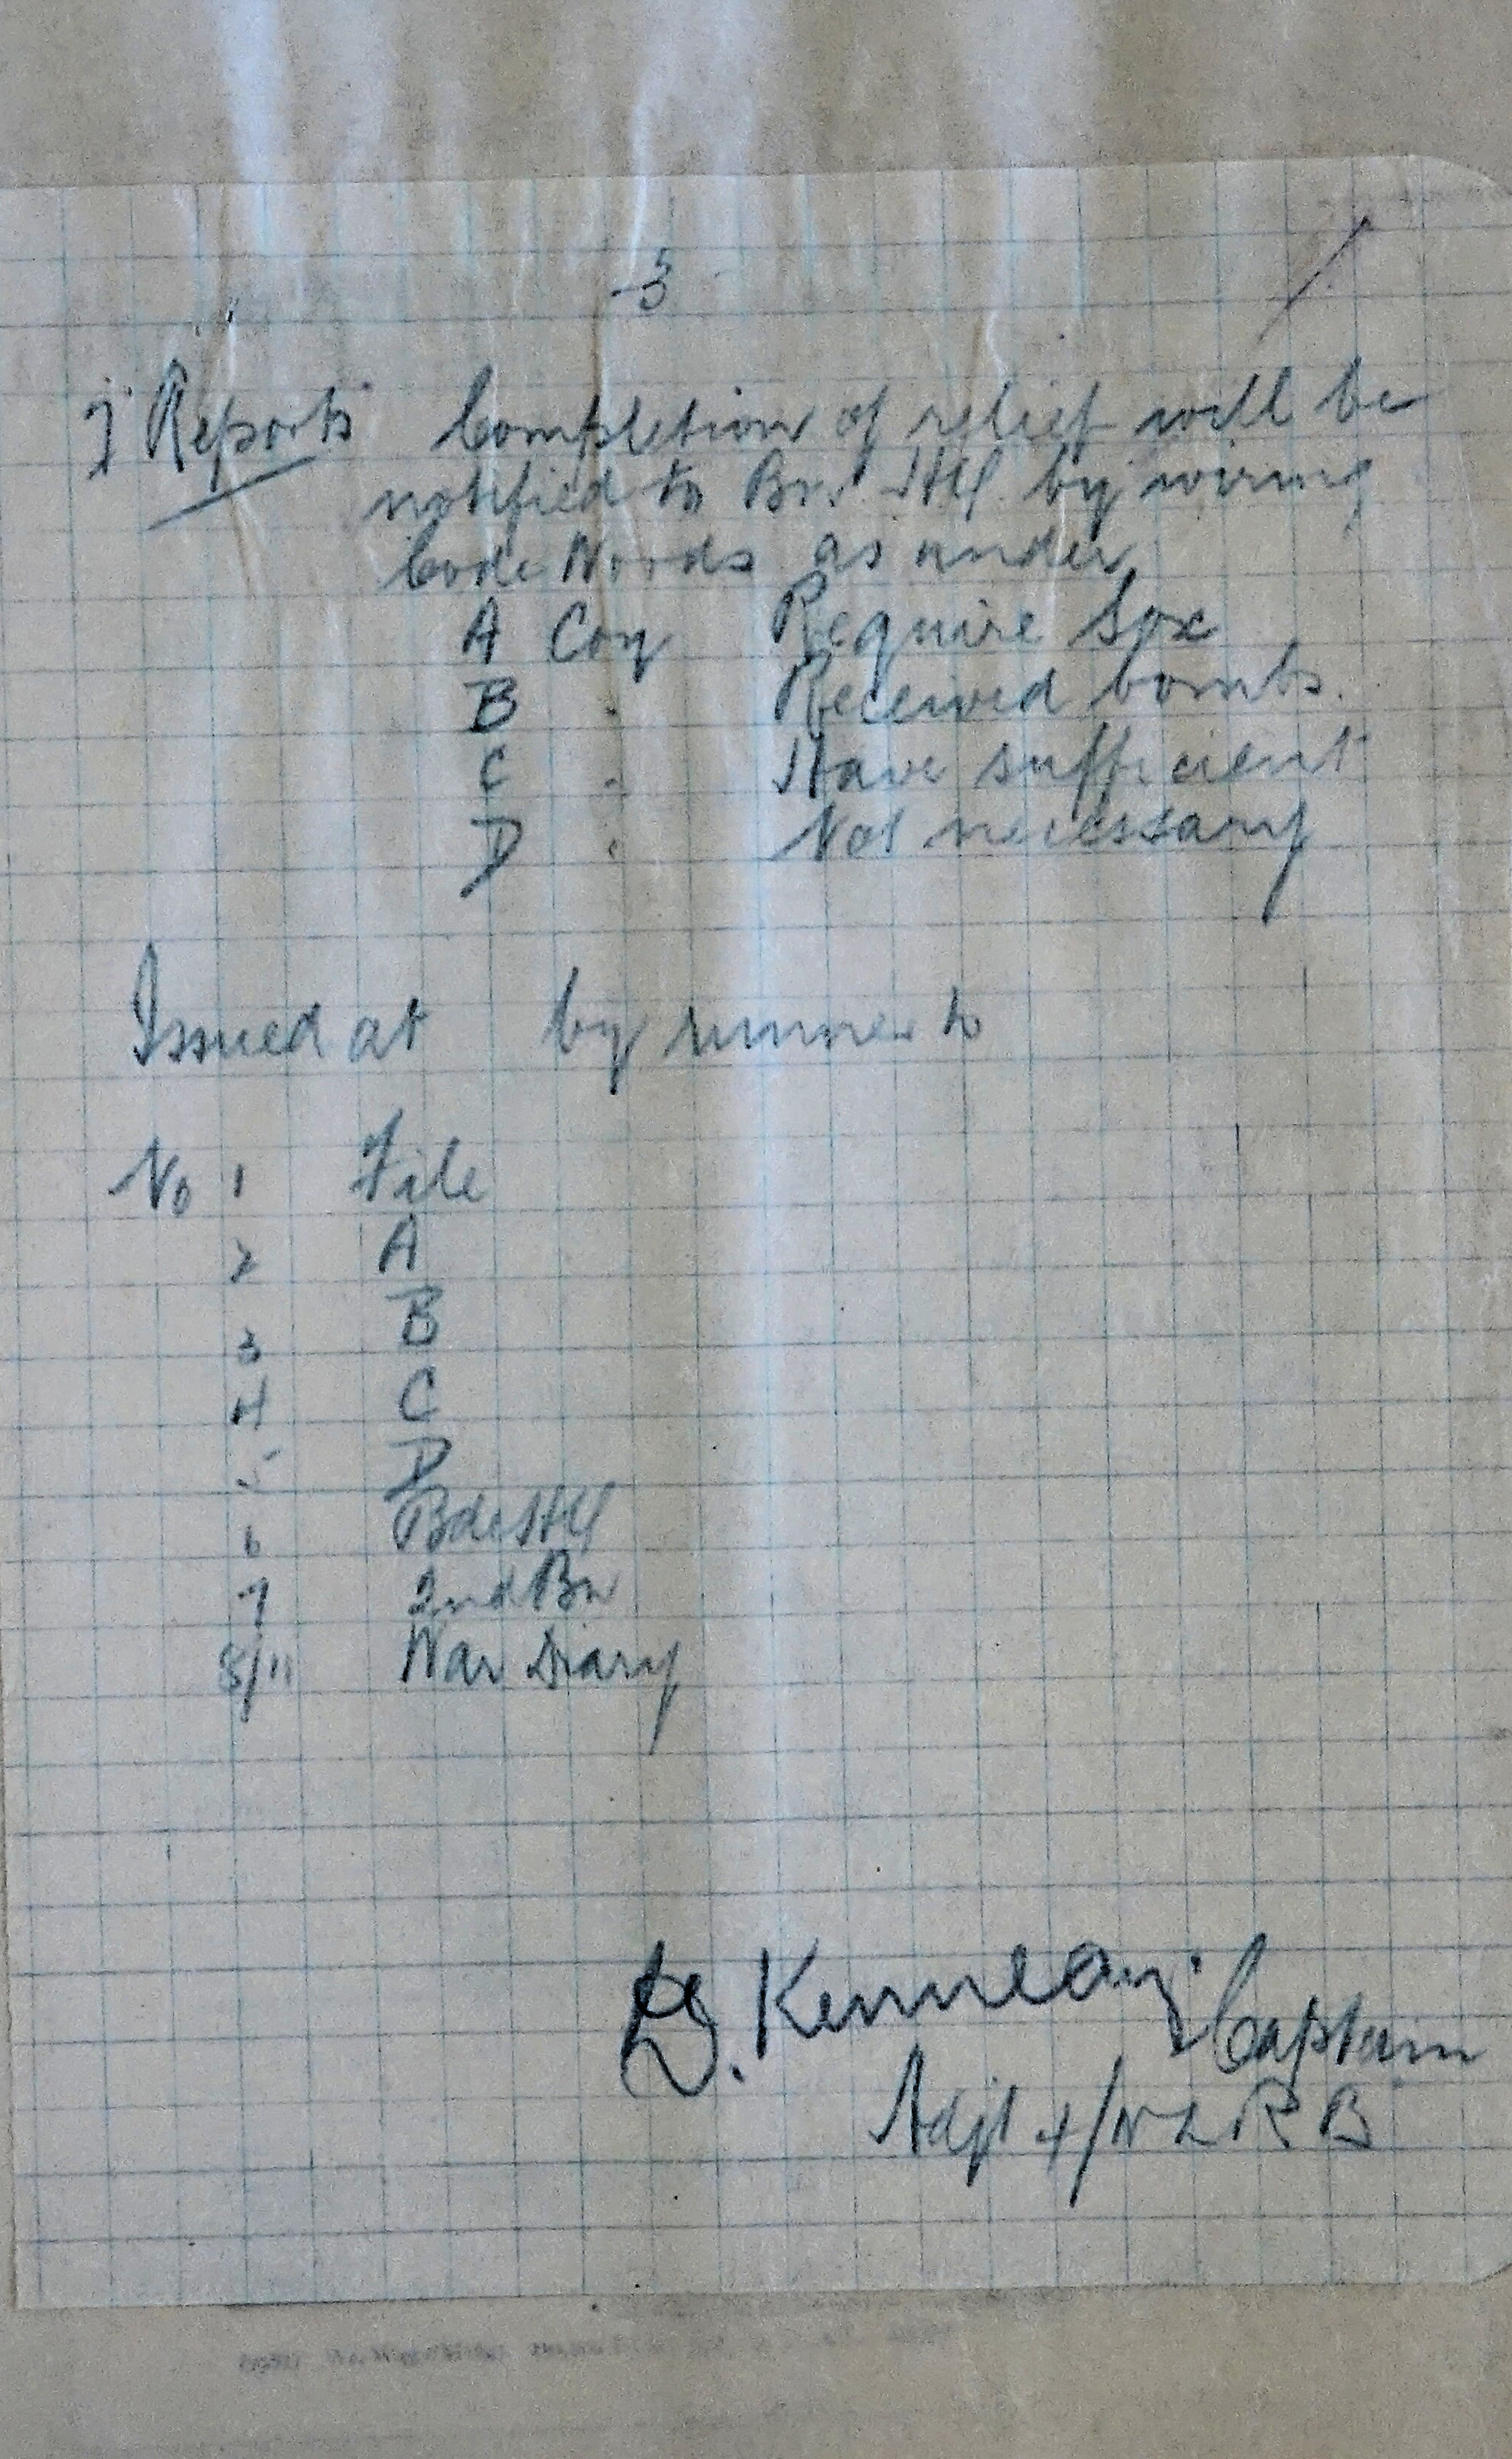 -3-
7 Reports Completion of relief will be
notified to Bn. HQ. by wiring
Code Words as under
A Coy Require Sox
B " Received bombs.
C " Have sufficient
D " Not necessary
Issued at by runner to
No 1 File
2 A
3 B
4 C
5 D
6 Bde HQ
7 2nd Bn
8/11 War Diary
D. Kenneay. Captain
Adjt 4/NZRB